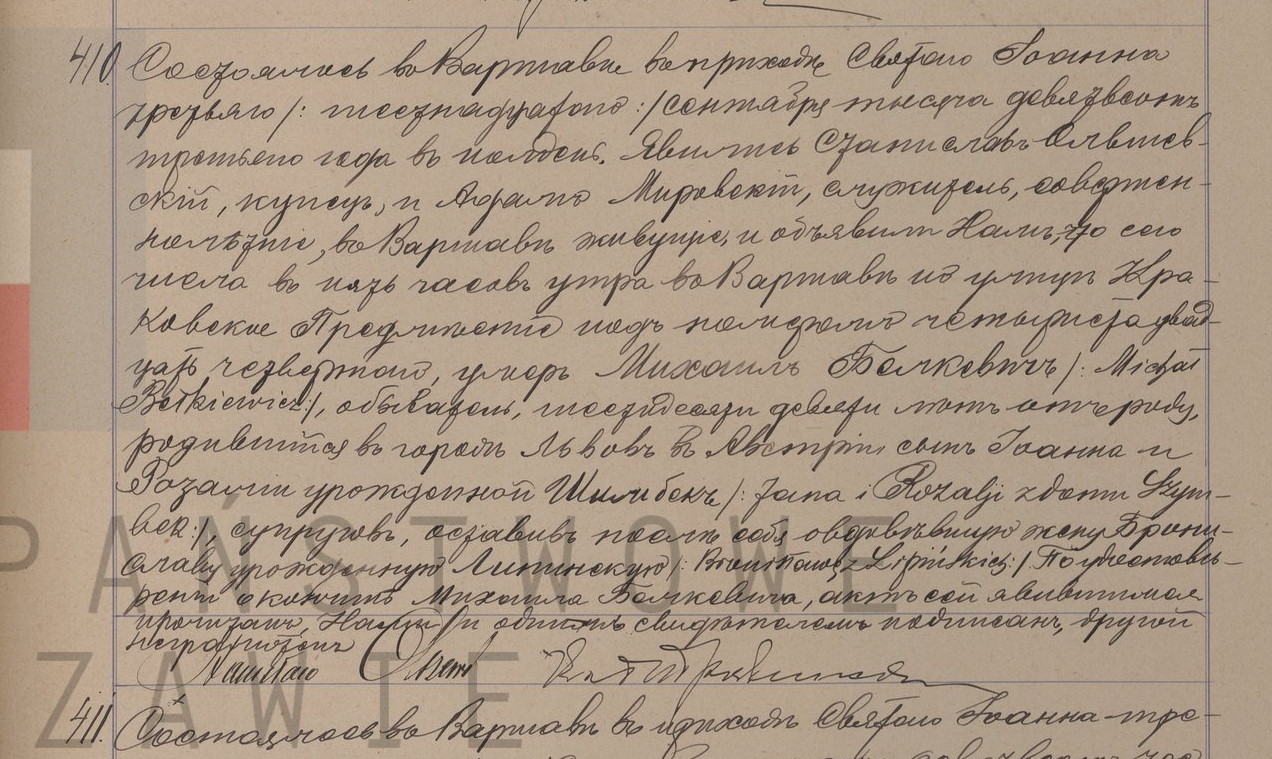 410. Состоялось въ Варшавѣ въ приходѣ Святаго Іоанна
третьяго /: шестнадцатого :/ сентября тысяча девятьсотъ
третьяго года въ полдень. Явились Станиславъ Ольшев-
скій, купецъ, и Адамъ Мировскій, служитель, совершен-
нолѣтніе, въ Варшавѣ живущіе, и объявили Намъ, что сего
числа въ пять часовъ утра въ Варшавѣ на улицѣ Кра-
ковское Предмѣстіе подъ номеромъ четыреста двад-
цать четвертымъ, умеръ Михаилъ Белкевичъ /: Michał
Bełkiewicz :/, обыватель, шестидесяти девяти лѣтъ отъ роду,
родившійся въ городѣ Львовѣ въ Австріи сынъ Іоанна и
Розаліи урожденной Шимбекъ /: Jana i Rozalji z domu Szym-
bek :/, супруговъ, оставивъ послѣ себя овдовѣвшую жену Брони-
славу урожденную Липинскую /: Bronisławę z Lipińskich :/ По удостовѣ-
реніи о кончинѣ Михаила Белкевича, актъ сей явившимся
прочитанъ, Нами и однимъ свидѣтелемъ подписанъ, другой
неграмотенъ
411. Состоялось въ Варшавѣ въ приходѣ Святаго Іоанна тре-
PAŃSTWOWE
ZAWIE